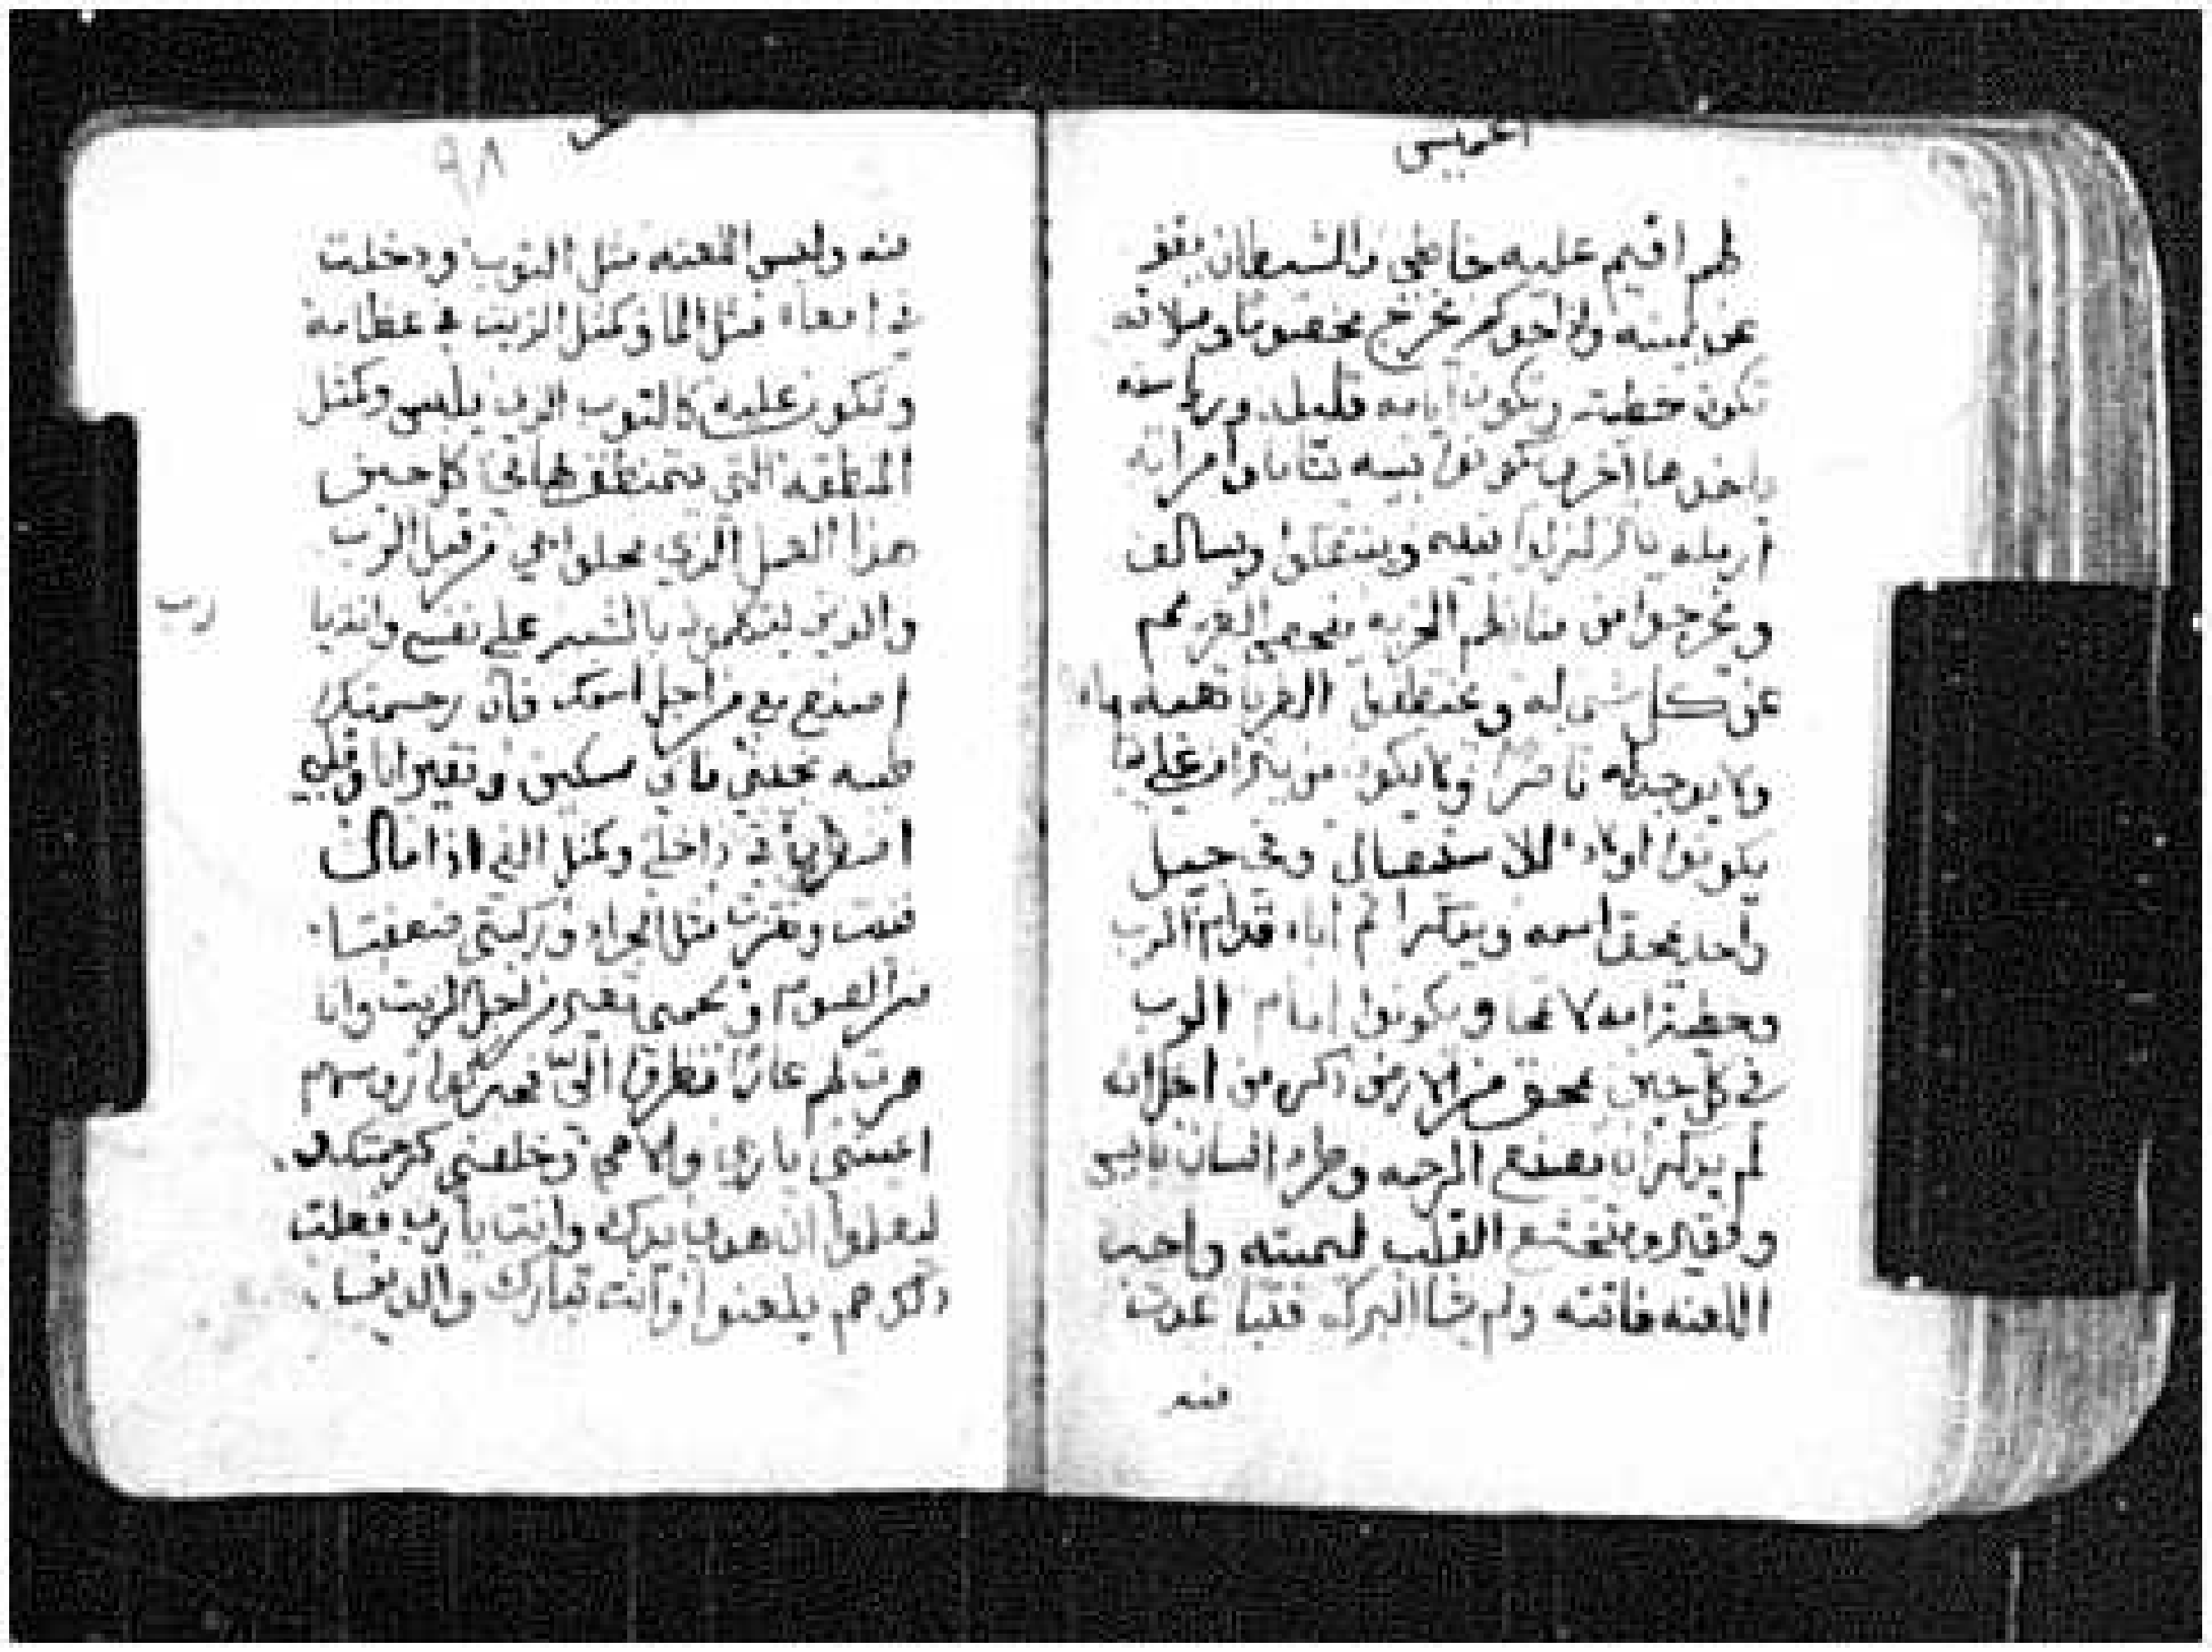 لهم اقيم عليه خاطي والشيطان يقف
عن يمينه واذا حوكم يخرج مخصوما وصلاته
تكون خطيته وتكون ايامه قليله ورياسته
ياخدها اخر ويكونوا بنيه يتاما وامراته
ارمله يتزلزلوا بنيه وينتقلوا ويسالون
ويخرجوا من منازلهم الخربه يفحص الغريم
عن كل شي له ويختطفون الغربا تعبه
ولا يوجد له ناصرا ولا يكون من يتراف على
يكونوا اولاده للاستيصال وفي جيل
واحد يمحق اسمه ويذكر اثم اباه قدام الرب
وخطية امه لا تمحا ويكونوا امام الرب
في كل حين يمحق من الارض ذكرهم من اجل انه
لم يذكر ان يصنع الرحمه وطرد انسان بايس
وفقير ومتخشع القلب ليميته واحب
اللعنه فاتته ولم يشا البركه فتباعدت
منه
٩٨
منه ولبس اللعنه مثل التوب ودخلت
في امعاه مثل الما وكمثل الزيت في عظامه
وتكون عليه كالتوب الذي يلبس وكمثل
المنطقه التي يتمنطق بها في كل حين
هذا العمل الذي يمحلوا بي من قبل الرب
والذين يتكلمون بالشر على نفسي وانت يا
رب
اصنع مع من اجل اسمك فان رحمتك
طيبه نجني فاني مسكين وفقير انا وقلبي
اضطرب في داخلي وكمثل الفي اذا مالت
فنيت ونفزت مثل الجراد وركبتي ضعفتا
من الصوم ولحمي تغير من اجل الزيت وانا
صرت لهم عارا نظروا الي فحركوا روسهم
اعيني يا رب والاهي وخلصني كرحمتك
ليعلموا ان هذه يدك وانت يا رب فعلت
ذلك هم يلعنوا وانت تبارك والذين